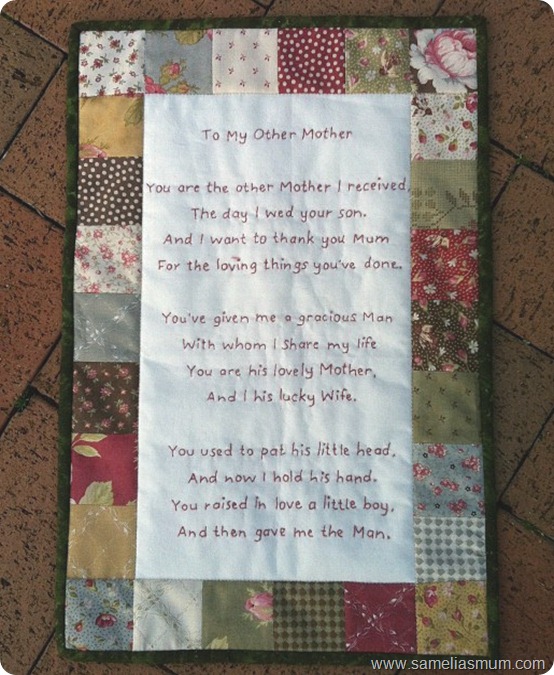 To My Other Mother
You are the other Mother I received,
The day I wed your son.
And I want to thank you Mum
For the loving things you've done.
You've given me a gracious Man
With whom I Share my life
You are his lovely Mother,
And I his lucky Wife.
You used to pat his little head,
And now I hold his hand.
You raised in love a little boy,
And then gave me the Man.
www.sameliasmum.com